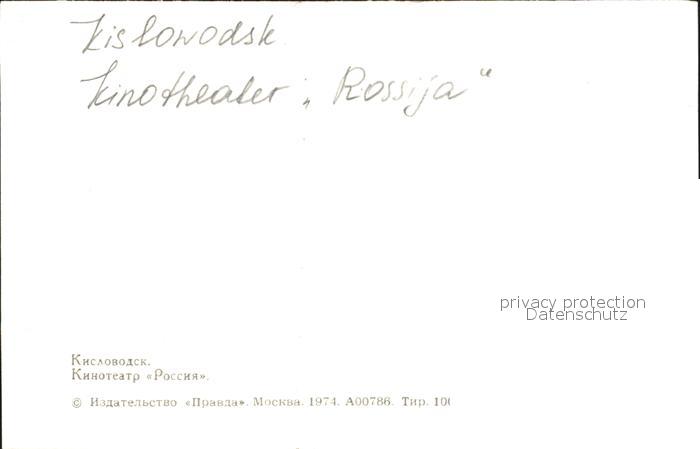 Kislowodsk
Kinotheater „Rossija“
privacy protection
Datenschutz
Кисловодск.
Кинотеатр «Россия».
© Издательство «Правда». Москва. 1974. А00786. Тир. 100